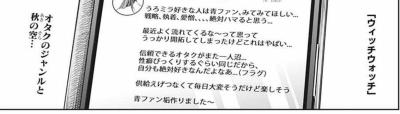 「ウィッチウォッチ」
うろミラ好きな人は青ファン、みてみてほしい…
戦略、執着、愛憎、、、、絶対ハマると思う…
最近よく流れてくるな〜って思って
うっかり開拓してしまったけどこれはやばい…
信頼できるオタクがまた一人沼…
性癖びっくりするぐらい同じだから、
自分も絶対好きなんだよなあ…(フラグ)
供給えげつなくて毎日大変そうだけど楽しそう
青ファン垢作りました〜
オタクのジャンルと
秋の空…